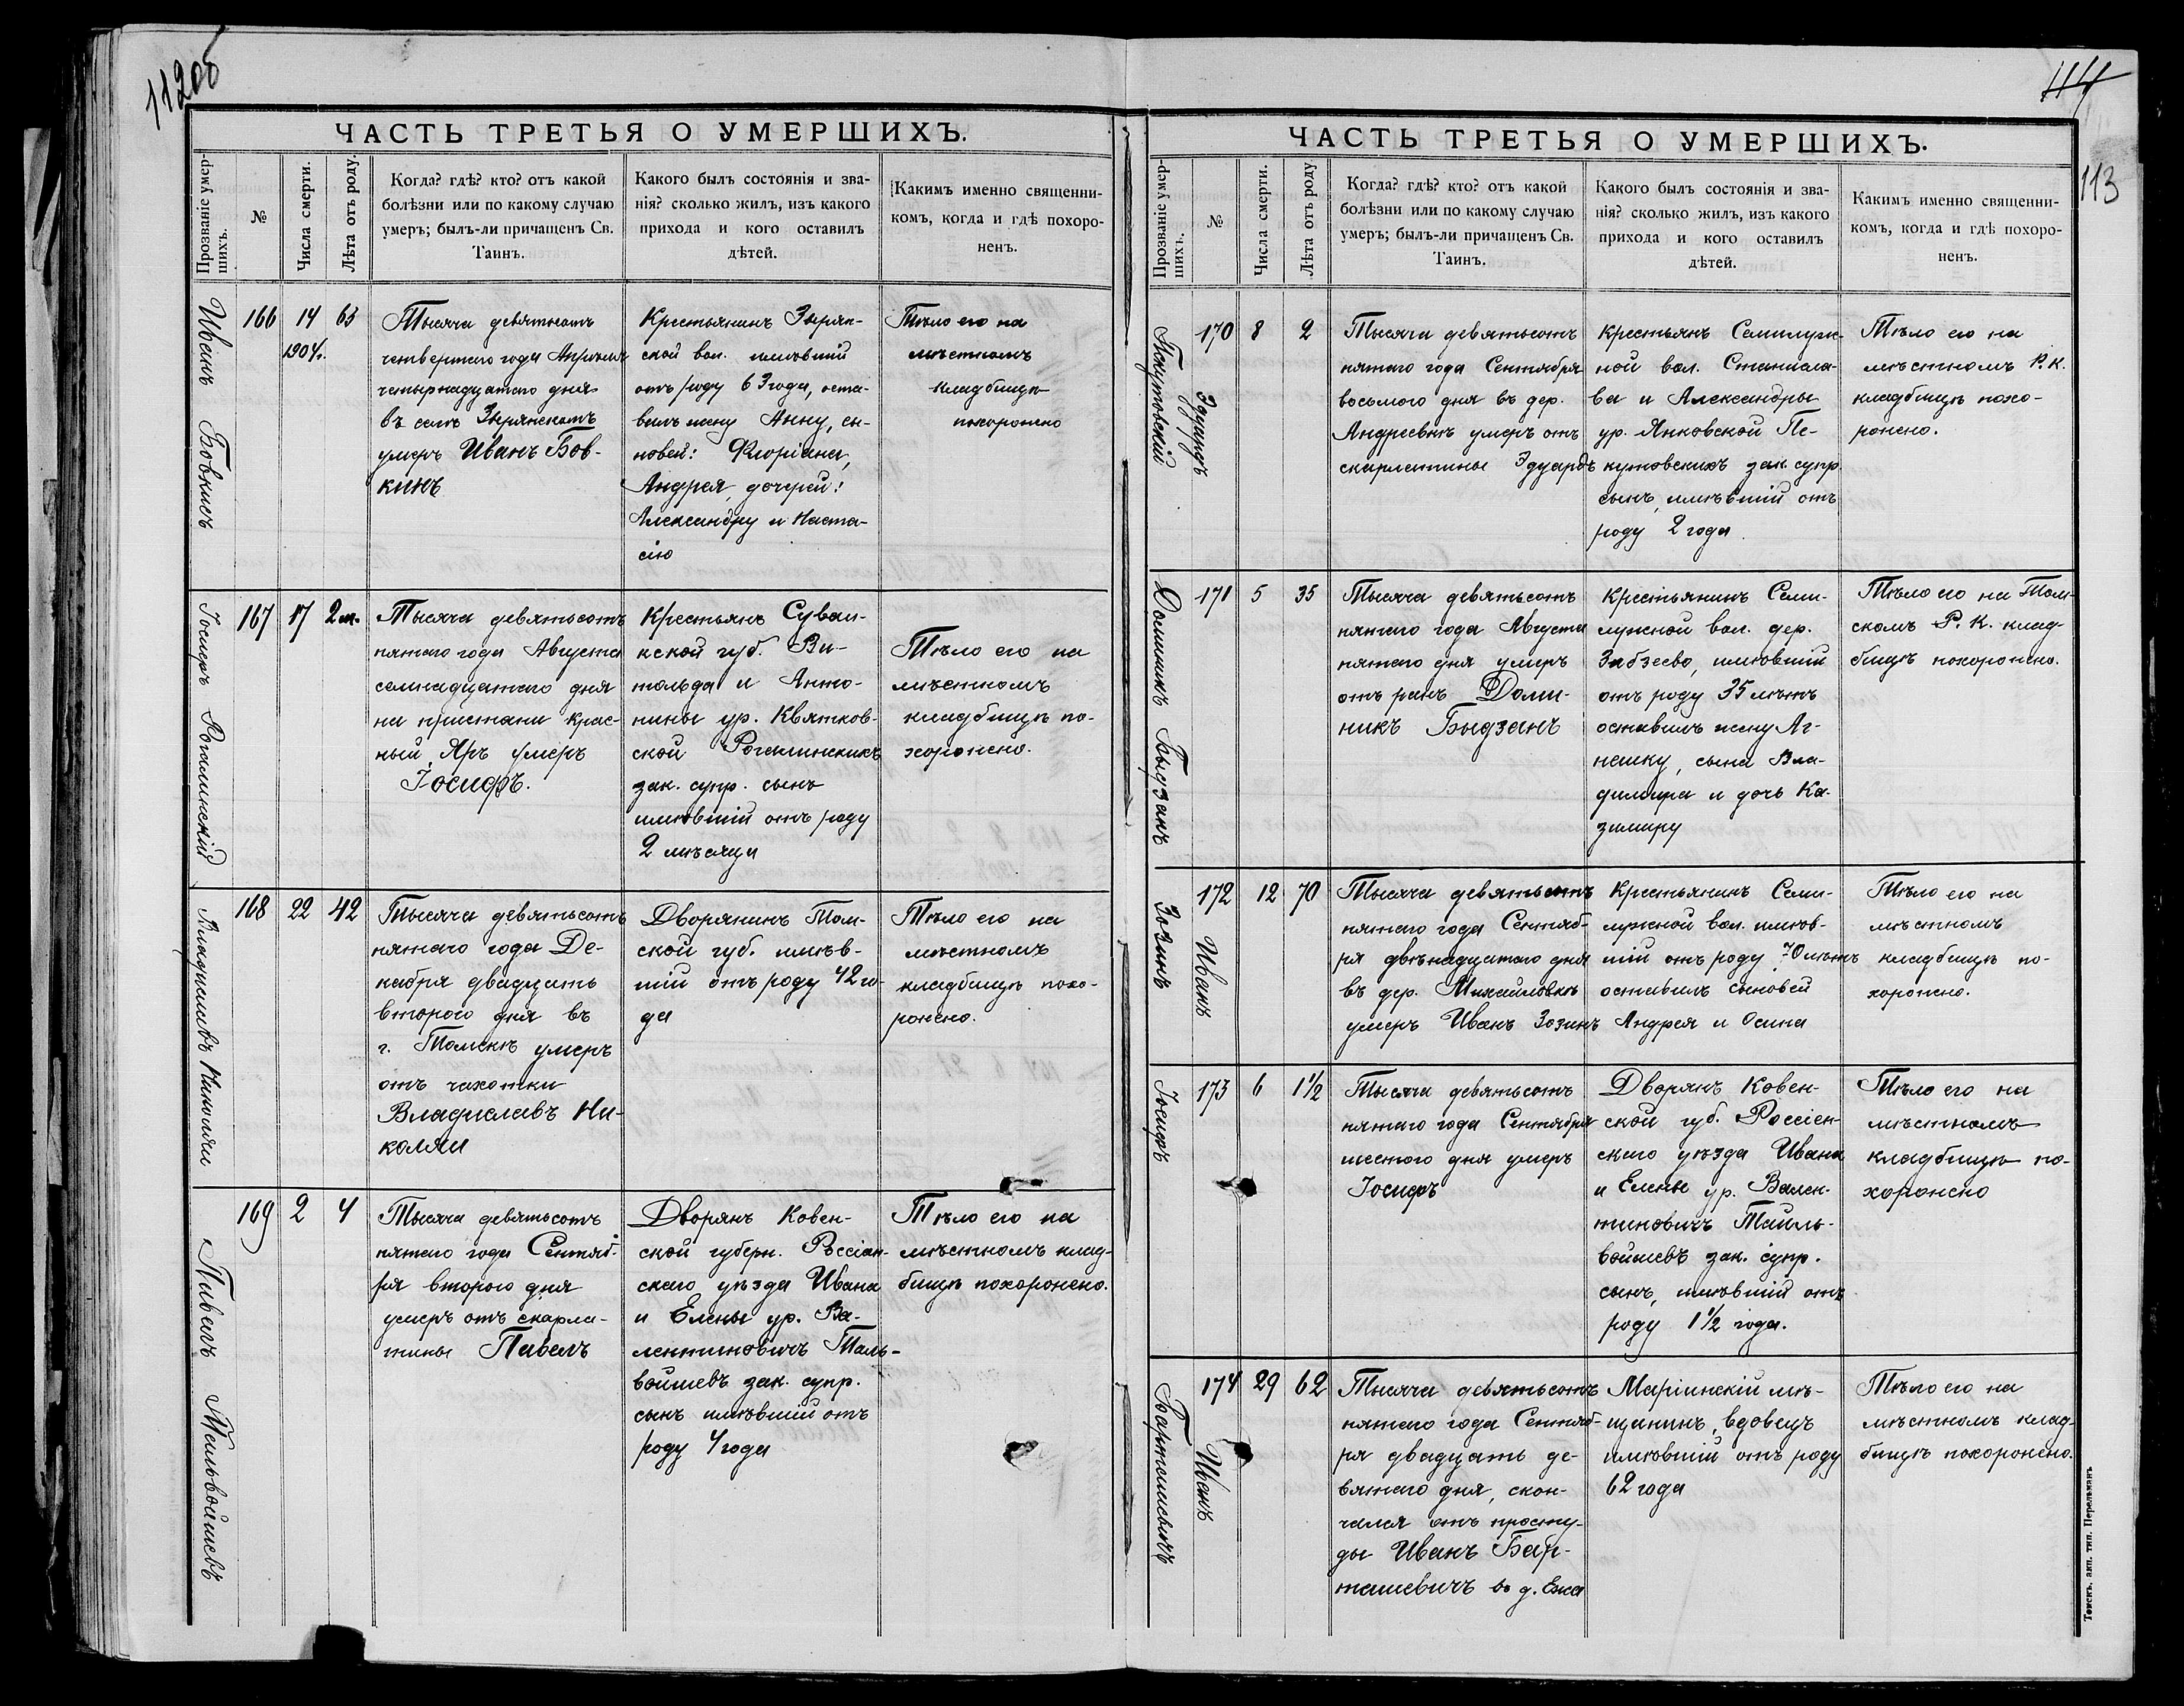 112об
ЧАСТЬ ТРЕТЬЯ О УМЕРШИХЪ.
Прозваніе умер-
шихъ.
№
Числа смерти.
Лѣта отъ роду.
Когда? гдѣ? кто? отъ какой
болѣзни или по какому случаю
умеръ; былъ-ли причащенъ Св.
Таинъ.
Какого былъ состоянія и зва-
нія? сколько жилъ, изъ какого
прихода и кого оставилъ
дѣтей.
Какимъ именно священни-
комъ, когда и гдѣ похоро-
ненъ.
Иванъ Бовкинъ
166
14
1904г.
63
Тысяча девятьсотъ
четвертаго года Апрѣля
четырнадцатаго дня
въ селѣ Зырянскомъ
умеръ Иванъ Бов-
кинъ
Крестьянинъ Зырян-
ской вол. имѣвшій
отъ роду 63 года, оста-
вилъ жену Анну, сы-
новей: Флоріана,
Андрея, дочерей:
Александру и Наста-
сію
Тѣло его на
мѣстномъ
кладбищѣ
похоронено
Іосифъ Рогалинскій
167
17
2 м.
Тысяча девятьсотъ
пятаго года Августа
семнадцатаго дня
на пристани Крас-
ный Яръ умеръ
Іосифъ.
Крестьянъ Сувал-
кской губ. Ви-
тольда и Анто-
нины ур. Квятков-
ской Рогалинскихъ
зак. супр. сынъ
имѣвшій отъ роду
2 мѣсяца
Тѣло его на
мѣстномъ
кладбищѣ по-
хоронено.
Владиславъ Николяи
168
22
42
Тысяча девятьсотъ
пятаго года Де-
кабря двадцать
второго дня въ
г. Томскѣ умеръ
отъ чахотки
Владиславъ Ни-
коляи
Дворянинъ Том-
ской губ. имѣв-
шій отъ роду 42 го-
да
Тѣло его на
мѣстномъ
кладбищѣ похо-
ронено.
Павелъ
169
2
4
Тысяча девятьсотъ
пятаго года Сентяб-
ря второго дня
умеръ отъ скарла-
тины Павелъ
Дворянъ Ковен-
ской губерн. Россіен-
скаго уѣзда Ивана
и Елены ур. Ва-
лентиновичъ Таль-
войшевъ зак. супр.
сынъ имѣвшій отъ
роду 4 года
Тѣло его на
мѣстномъ клад-
бищѣ похоронено.
114
113
ЧАСТЬ ТРЕТЬЯ О УМЕРШИХЪ.
Прозваніе умер-
шихъ.
№
Числа смерти.
Лѣта отъ роду
Когда? гдѣ? кто? отъ какой
болѣзни или по какому случаю
умеръ; былъ-ли причащенъ Св.
Таинъ.
Какого былъ состоянія и зва-
нія? сколько жилъ, изъ какого
прихода и кого оставилъ
дѣтей.
Какимъ именно священни-
комъ, когда и гдѣ похоро-
ненъ.
Эдуардъ
170
8
2
Тысяча девятьсотъ
пятаго года Сентября
восьмого дня въ дер.
Андреевкѣ умеръ отъ
скарлатины Эдуардъ
Крестьянъ Семилуж-
ной вол. Станисла-
ва и Александры
ур. Янковской Пе-
кутовскихъ зак. супр.
сынъ, имѣвшій отъ
роду 2 года
Тѣло его на
мѣстномъ Р. К.
кладбищѣ похо-
ронено.
Доминикъ Быдзанъ
171
5
35
Тысяча девятьсотъ
пятаго года Августа
пятаго дня умеръ
отъ ранъ Доми-
никъ Быдзанъ
Крестьянинъ Семи-
лужной вол. дер.
имѣвшій
отъ роду 35 лѣтъ
оставилъ жену Аг-
нешку, сына Вла-
димира и дочь Ка-
зимиру
Тѣло его на Том-
скомъ Р. К. клад-
бищѣ похоронено.
Зозинъ
Иванъ
172
12
70
Тысяча девятьсотъ
пятаго года Сентяб-
ря двѣнадцатаго дня
въ дер. Михайловкѣ
умеръ Иванъ Зозинъ
Крестьянинъ Семи-
лужной вол. имѣв-
шій отъ роду 70 лѣтъ
оставилъ сыновей
Андрея и Осипа
Тѣло его на
мѣстномъ
кладбищѣ по-
хоронено.
Іосифъ
173
6
1½
Тысяча девятьсотъ
пятаго года Сентября
шестого дня умеръ
Іосифъ
Дворянъ Ковен-
ской губ. Россіен-
скаго уѣзда Ивана
и Елены ур. Вален-
тиновичъ Тайль-
войшевъ зак. супр.
сынъ, имѣвшій отъ
роду 1½ года.
Тѣло его на
мѣстномъ
кладбищѣ по-
хоронено
Барташевичъ
Иванъ
174
29
62
Тысяча девятьсотъ
пятаго года Сентяб-
ря двадцать де-
вятаго дня, скон-
чался отъ просту-
ды Иванъ Бар-
ташевичъ въ д.
Маріинскій мѣ-
щанинъ, вдовецъ
имѣвшій отъ роду
62 года
Тѣло его на
мѣстномъ клад-
бищѣ похоронено.
Томскъ. акп. тип. Перельманъ